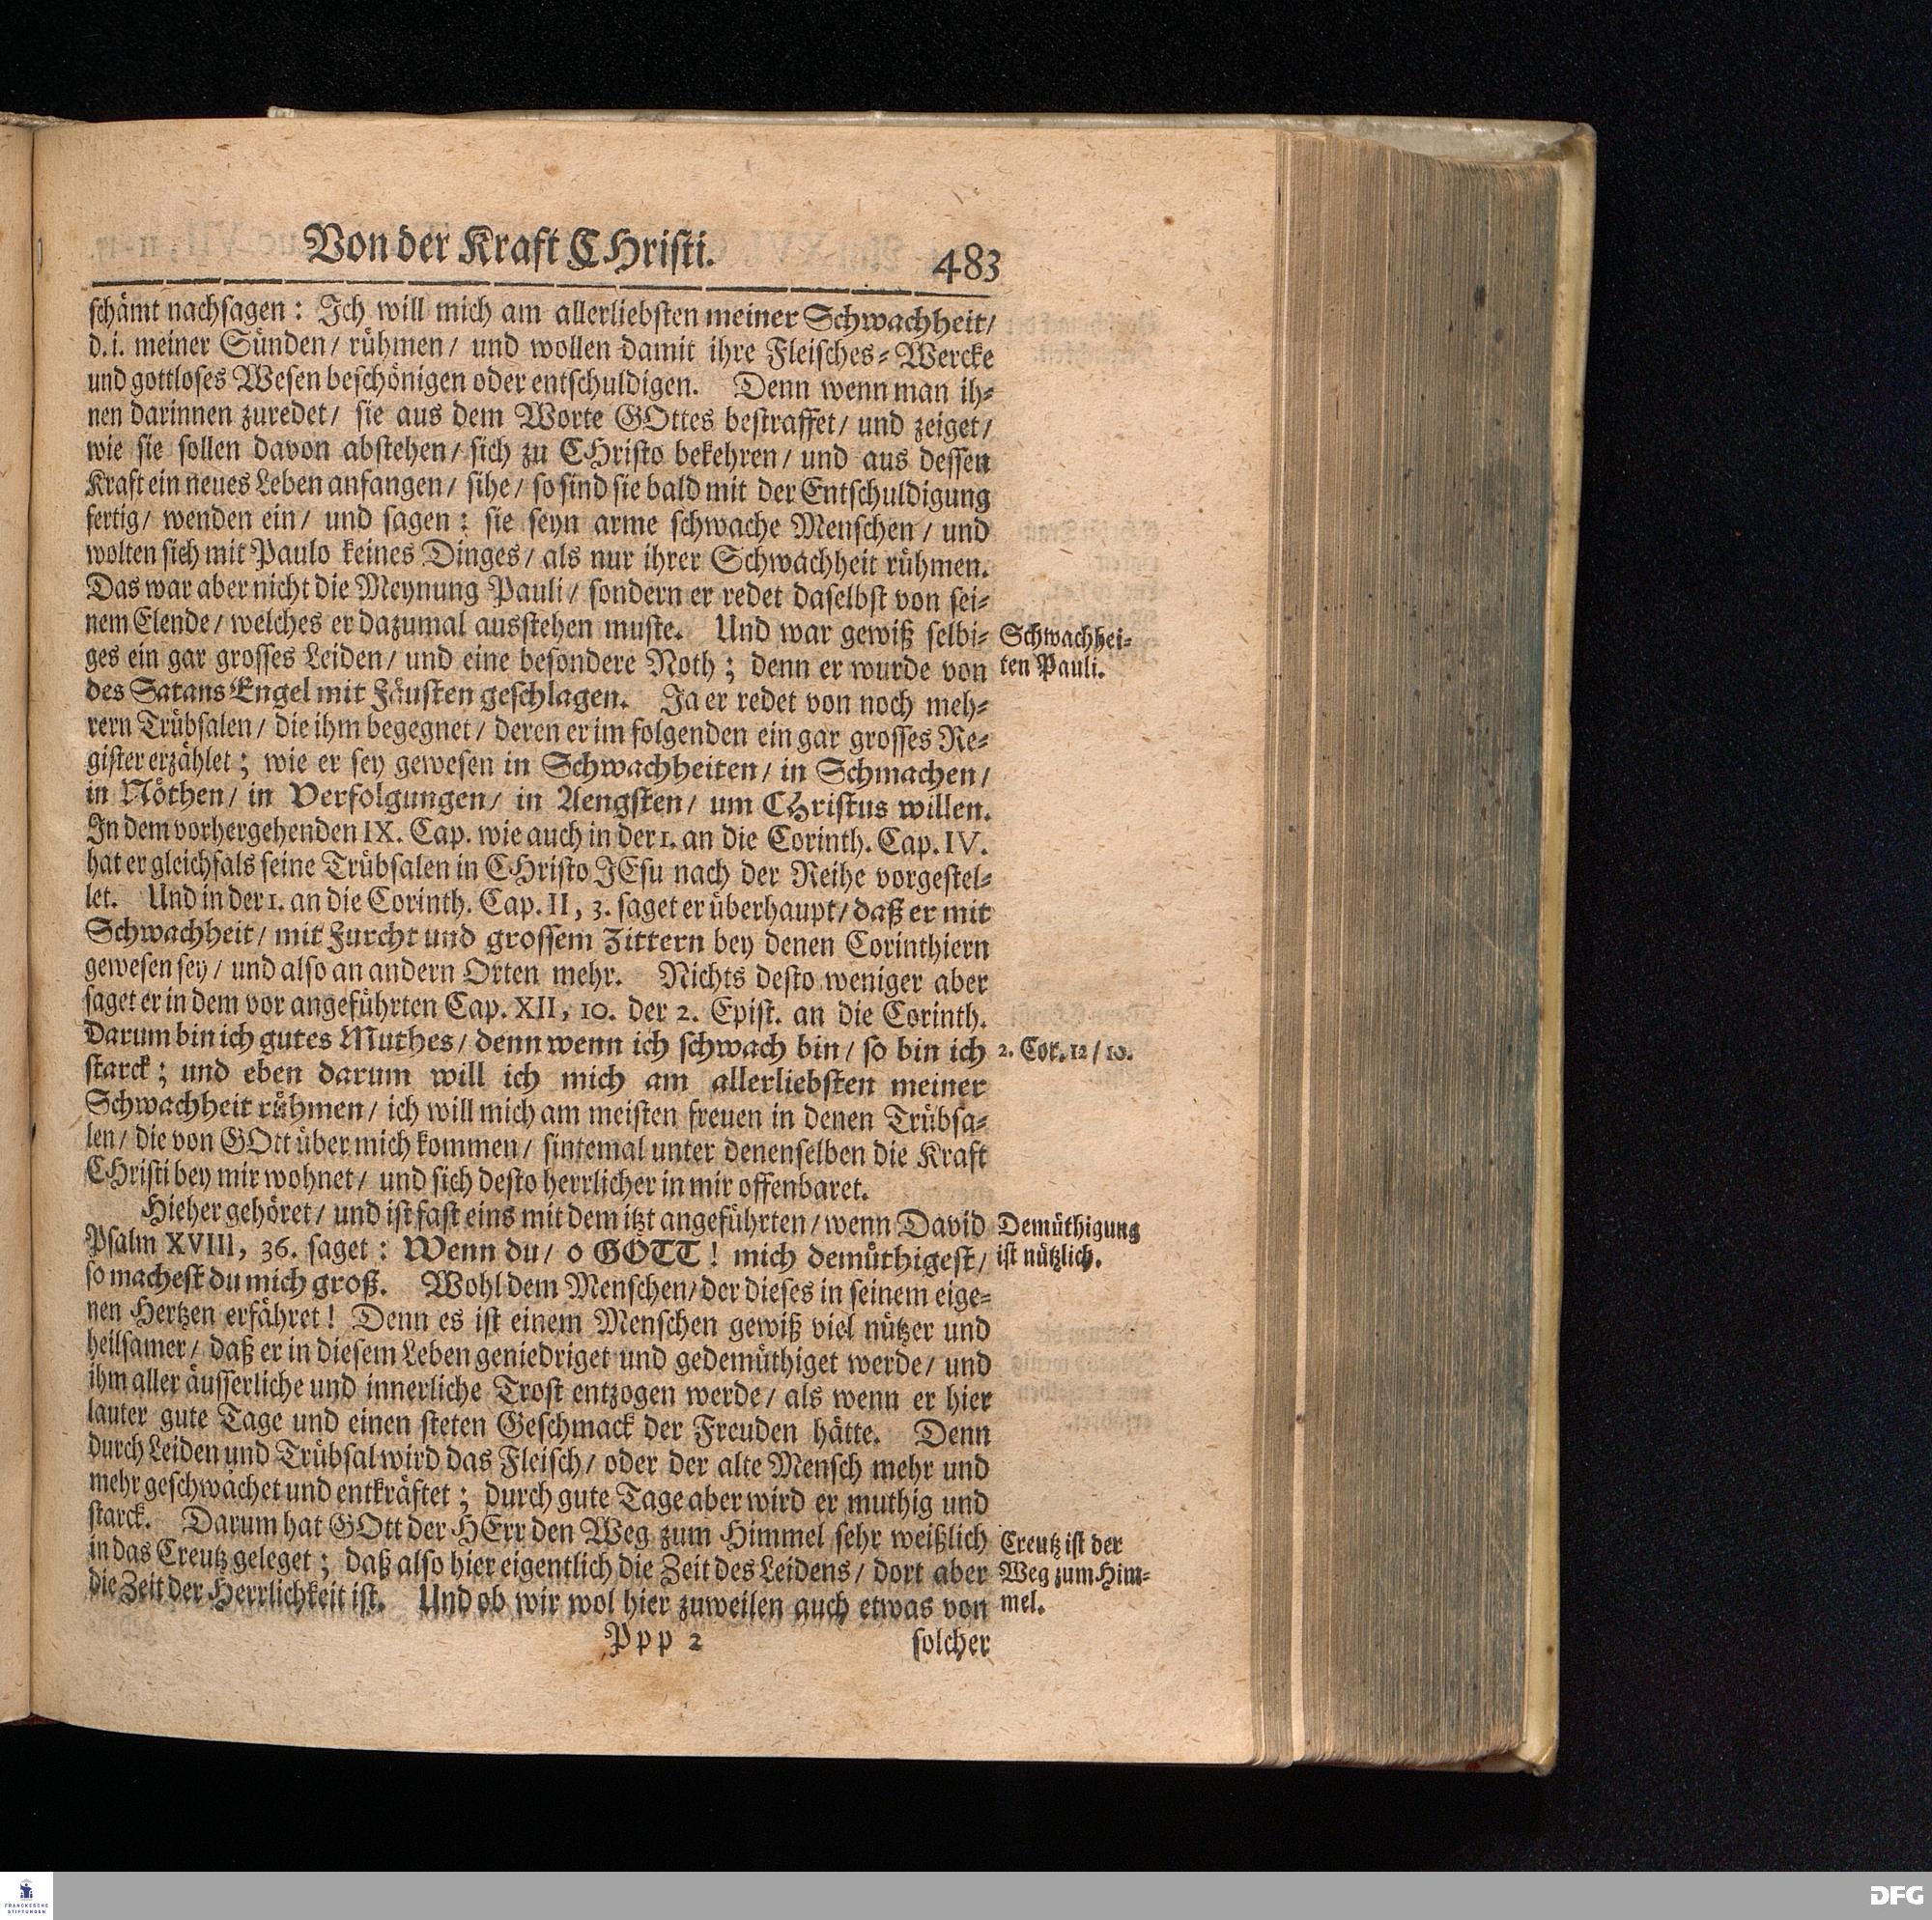 Von der Kraft CHristi. 483
schämt nachsagen: Ich will mich am allerliebsten meiner Schwachheit/
d. i. meiner Sünden/ rühmen/ und wollen damit ihre Fleisches-Wercke
und gottloses Wesen beschönigen oder entschuldigen. Denn wenn man ih-
nen darinnen zuredet/ sie aus dem Worte GOttes bestraffet/ und zeiget/
wie sie sollen davon abstehen/ sich zu CHristo bekehren/ und aus dessen
Kraft ein neues Leben anfangen/ sihe/ so sind sie bald mit der Entschuldigung
fertig/ wenden ein/ und sagen: sie seyn arme schwache Menschen/ und
wolten sich mit Paulo keines Dinges/ als nur ihrer Schwachheit rühmen.
Das war aber nicht die Meynung Pauli/ sondern er redet daselbst von sei-
nem Elende/ welches er dazumal ausstehen muste. Und war gewiß selbi-
ges ein gar grosses Leiden/ und eine besondere Noth; denn er wurde von
des Satans Engel mit Fäusten geschlagen. Ja er redet von noch meh-
rern Trübsalen/ die ihm begegnet/ deren er im folgenden ein gar grosses Re-
gister erzählet; wie er sey gewesen in Schwachheiten/ in Schmachen/
in Nöthen/ in Verfolgungen/ in Aengsten/ um Christus willen.
In dem vorhergehenden IX. Cap. wie auch in der 1. an die Corinth. Cap. IV.
hat er gleichfals seine Trübsalen in CHristo JEsu nach der Reihe vorgestel-
let. Und in der 1. an die Corinth. Cap. II, 3. saget er überhaupt/ daß er mit
Schwachheit/ mit Furcht und grossem Zittern bey denen Corinthiern
gewesen sey/ und also an andern Orten mehr. Nichts desto weniger aber
saget er in dem vor angeführten Cap. XII, 10. der 2. Epist. an die Corinth.
Darum bin ich gutes Muthes/ denn wenn ich schwach bin/ so bin ich
starck; und eben darum will ich mich am allerliebsten meiner
Schwachheit rühmen/ ich will mich am meisten freuen in denen Trübsa-
len/ die von GOtt über mich kommen/ sintemal unter denenselben die Kraft
CHristi bey mir wohnet/ und sich desto herrlicher in mir offenbaret.
Hieher gehöret/ und ist fast eins mit dem itzt angeführten/ wenn David
Psalm XVIII, 36. saget: Wenn du/ o GOTT! mich demüthigest/
so machest du mich groß. Wohl dem Menschen/ der dieses in seinem eige-
nen Hertzen erfähret! Denn es ist einem Menschen gewiß viel nützer und
heilsamer/ daß er in diesem Leben geniedriget und gedemüthiget werde/ und
ihm aller äusserliche und innerliche Trost entzogen werde/ als wenn er hier
lauter gute Tage und einen steten Geschmack der Freuden hätte. Denn
durch Leiden und Trübsal wird das Fleisch/ oder der alte Mensch mehr und
mehr geschwächet und entkräftet; durch gute Tage aber wird er muthig und
starck. Darum hat GOtt der HErr den Weg zum Himmel sehr weißlich
in das Creutz geleget; daß also hier eigentlich die Zeit des Leidens/ dort aber
die Zeit der Herrlichkeit ist. Und ob wir wol hier zuweilen auch etwas von
Ppp 2 solcher
Schwachhei-
ten Pauli.
2. Cor. 12/ 10.
Demüthigung
ist nützlich.
Creutz ist der
Weg zum Him-
mel.
FRANCKESCHE
STIFTUNGEN
DFG